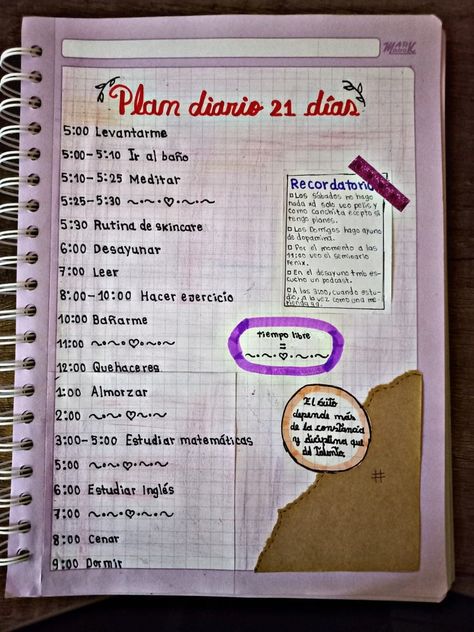 MARK
Plan diario 21 días
5:00 Levantarme
5:00-5:10 Ir al baño
5:10-5:25 Meditar
5:25-5:30 ~·~·♡·~·~
5:30 Rutina de skincare
6:00 Desayunar
7:00 Leer
8:00-10:00 Hacer ejercicio
10:00 Bañarme
11:00 ~·~·♡·~·~
12:00 Quehaceres
1:00 Almorzar
2:00 ~·~·♡·~·~
3:00-5:00 Estudiar matemáticas
5:00 ~·~·♡·~·~
6:00 Estudiar Inglés
7:00 ~·~·♡·~·~
8:00 Cenar
9:00 Dormir
Recordatorio
Los sábados no hago
nada xd solo veo pelis y
como conchita ecepto si
tengo planes.
Los Domigos hago ayuno
de dopamina.
Por el momento a las
11:00 veo el seminario
fenix.
En el desayuno tmb es-
cucho un podcast.
A las 3:00, cuando estu-
dio, a la vez como una me-
rienda
tiempo libre
=
~·~·♡·~·~
El éxito
depende más
de la constancia
y disciplina que
del talento.
#